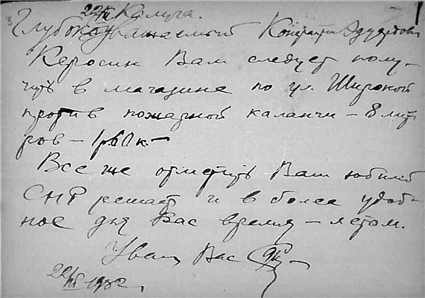 Калуга.
Глубокоуважаемый Константин Эдуардович
Керосин Вам следует полу-
чить в магазине по ул. Широкой
против пожарной каланчи – 8 лит
ров – 1р60к
Все же отметить Ваш юбилей
СНР решает и в более удоб-
ное для Вас время – летом.
Уваж Вас